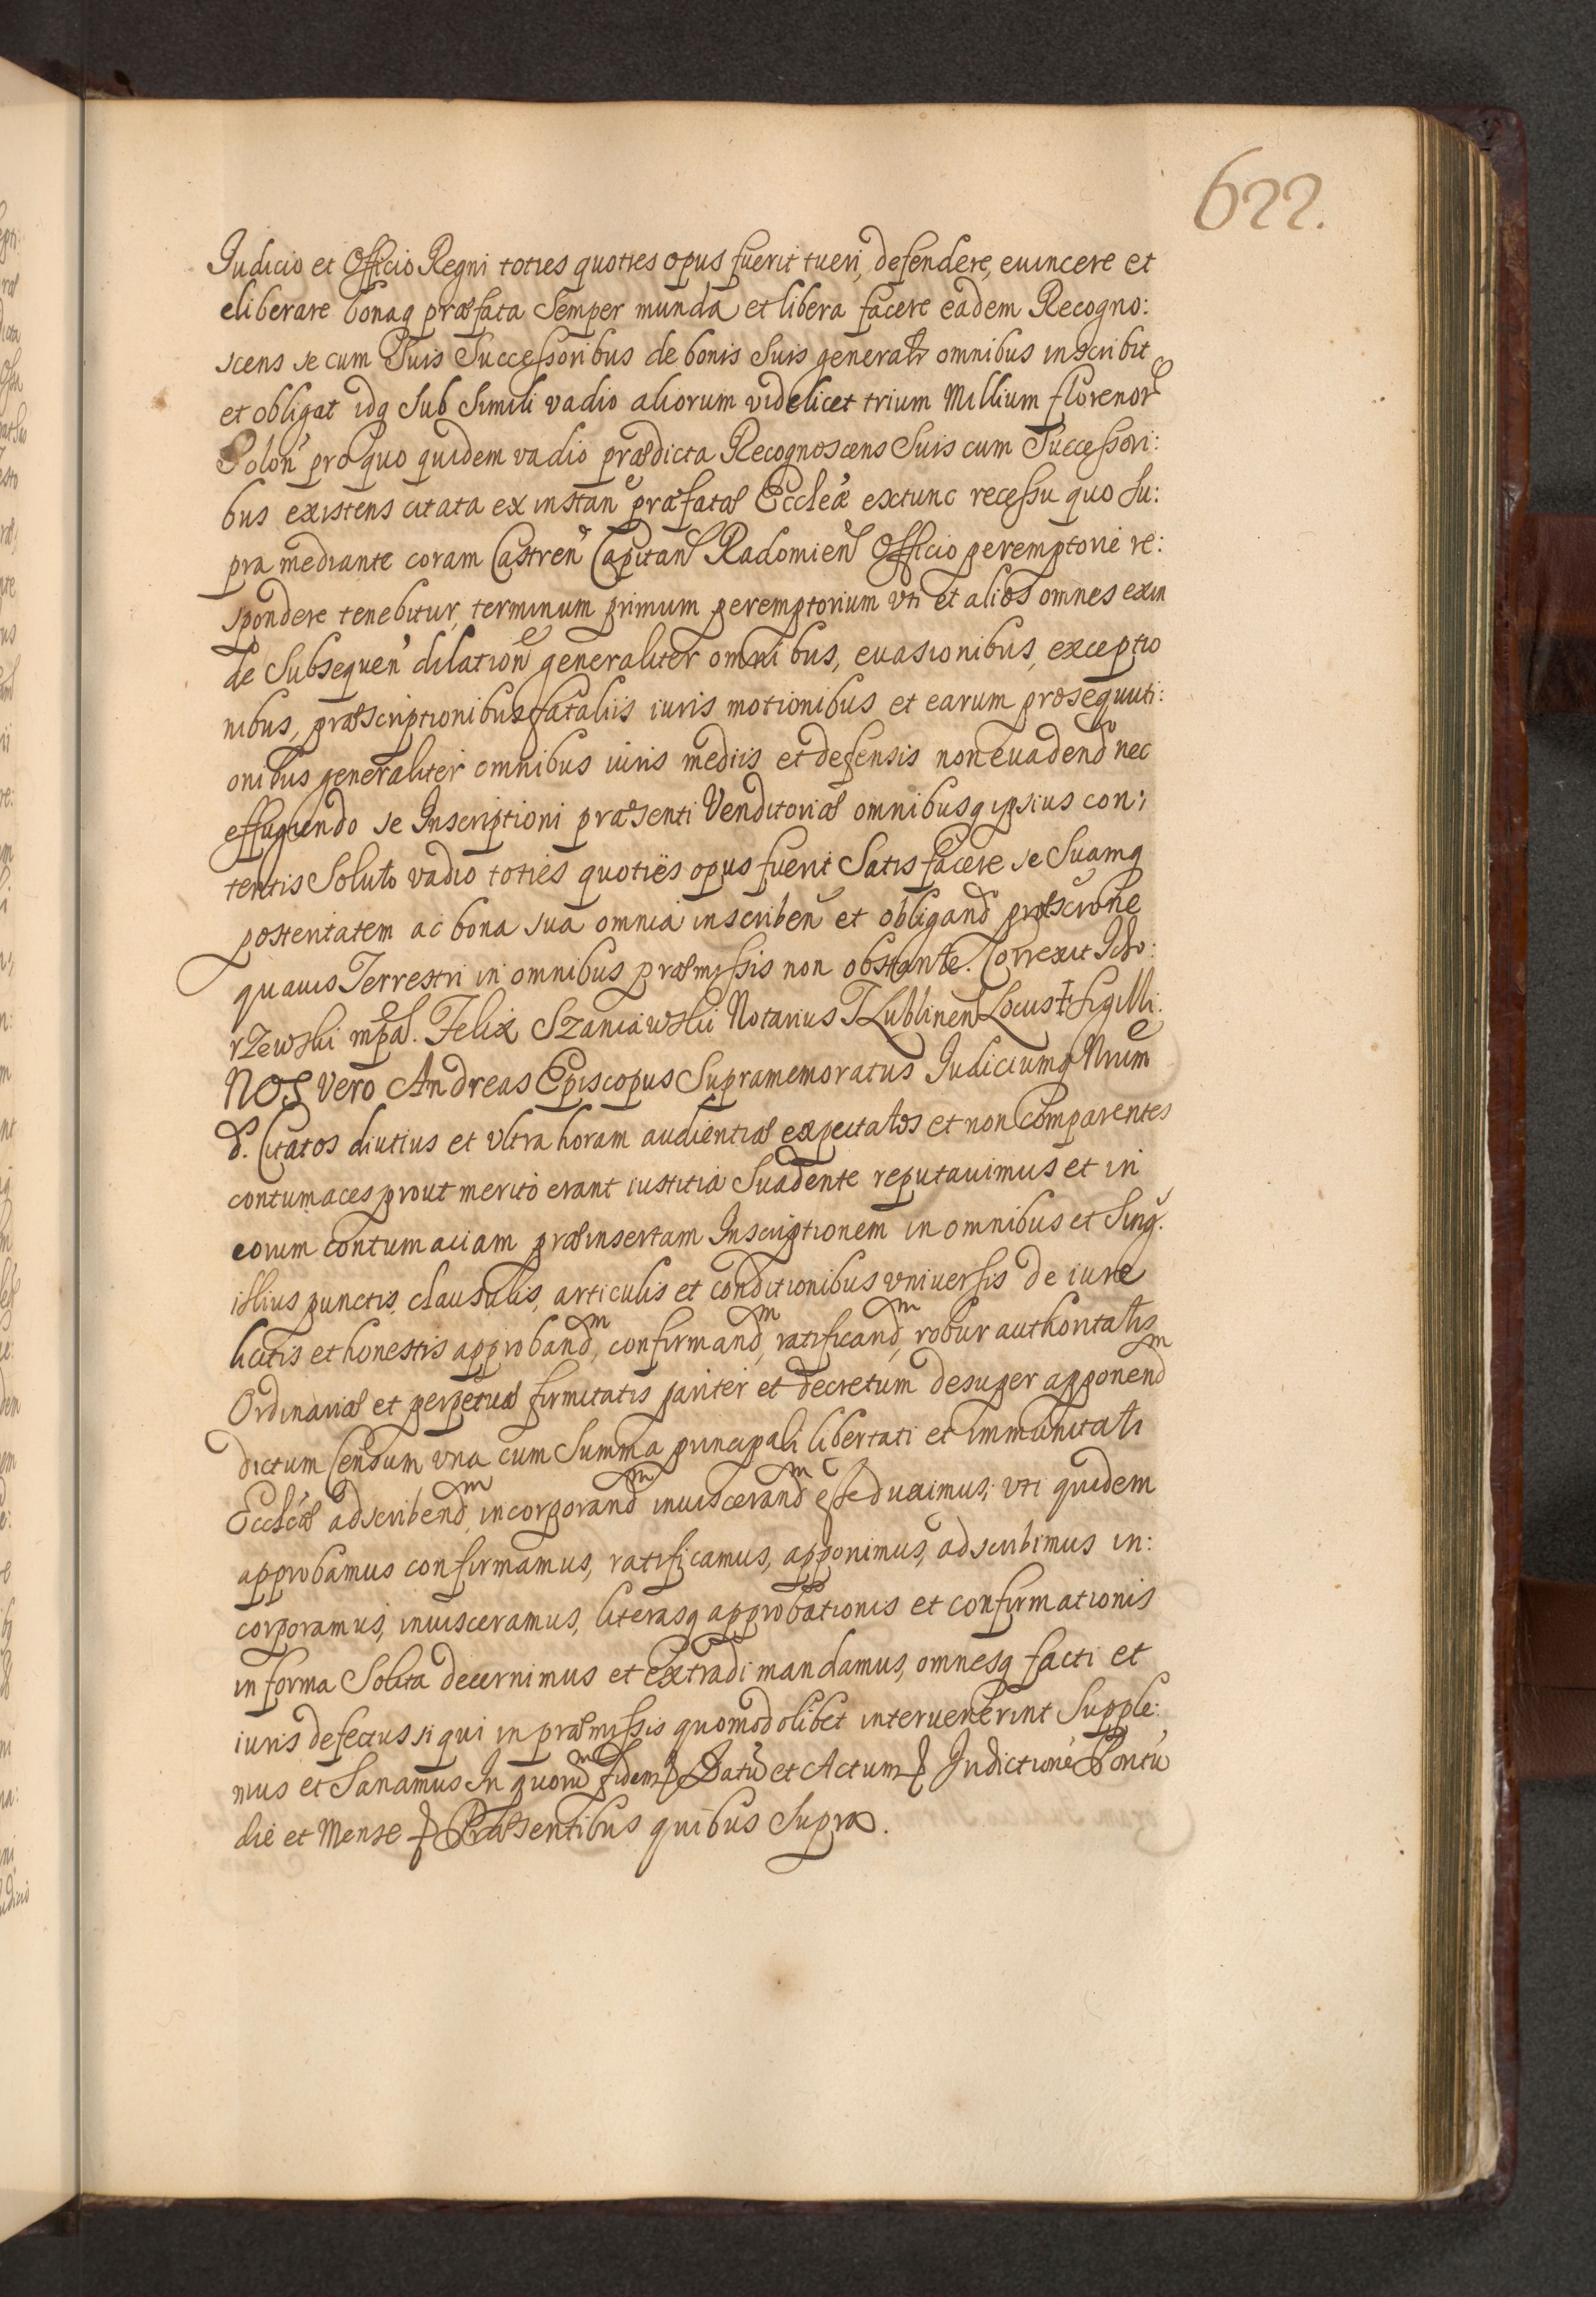 622.
Judicio et Officio Regni toties quoties opus fuerit tueri, defendere, euincere et
eliberare bonaq præfata Semper munda et libera facere eadem Recogno:
scens se cum Suis Successoribus de bonis Suis generalr omnibus inscribit
et obligat idq Sub Simili vadio aliorum videlicet trium Millium florenor
Polon pro quo quidem vadio prædicta Recognoscens Suis cum Successori:
bus existens citata ex instan præfatæ Eccleæ extunc recessu quo Su:
pra mediante coram Castren Capitanl Radomien Officio peremptorie re:
spondere tenebitur, terminum primum peremptorium vti et alios omnes exin
de Subsequen dilation generaliter omnibus, euasionibus, exceptio
nibus, præscriptionibus fataliis iuris motionibus et earum prosequuti:
onibus generaliter omnibus iuris mediis et defensis non euadend nec
effugiendo se Inscriptioni præsenti Venditoriæ omnibusq ipsius con:
tentis Soluto vadio toties quoties opus fuerit Satisfacere se Suamq
posteritatem ac bona sua omnia inscriben et obligand præscrone
quauis Terrestri in omnibus præmissis non obstante. Correxit Ido:
rzewski mpa. Felix Szaniawski Notarius T Lublinen Locus ✝ Sigilli.
NOS Vero Andreas Episcopus Supramemoratus Judiciumq Nrum
d. Citatos diutius et Vltra horam audientiæ expectatos et non Comparentes
contumaces prout merito erant iustitia Suadente reputauimus et in
eorum contumaciam præinsertam Inscriptionem in omnibus et Sing.
illius punctis, clausulis, articulis et conditionibus vniuersis de iure
licitis et honestis approband, confirmand, ratificand, robur authoritatis
Ordinariæ et perpetuæ firmitatis pariter et decretum desuper apponend
dictum Censum vna cum Summa principali libertati et immunitati
Eccleæ adscribend, incorporand inuiscerand esse duximus, vti quidem
approbamus confirmamus, ratificamus, apponimus, adscribimus in:
corporamus, inuisceramus, literasq approbationis et confirmationis
in forma Solita decernimus et extradi mandamus, omnesq facti et
iuris defectus si qui in præmissis quomodolibet interuenerint Supple:
mus et Sanamus In quorm fidem Datu et Actum Indictione Pontu
die et Mense Præsentibus quibus Supra.